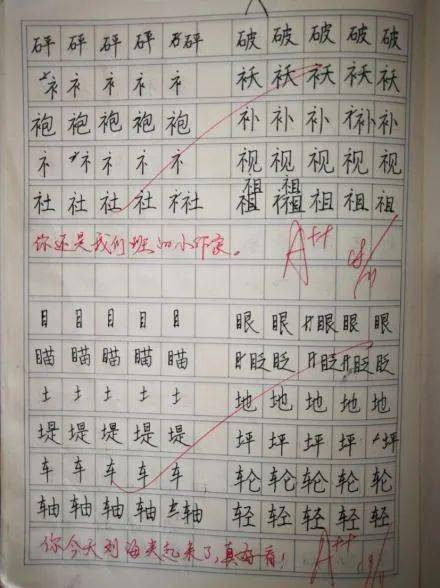 砰 砰 砰 砰 砰 破 破 破 破 破
礻 礻 礻 礻 礻 袄 袄 袄 袄 袄
袍 袍 袍 袍 袍 补 补 补 补 补
礻 礻 礻 礻 礻 视 视 视 视 视
社 社 社 社 社 祖 祖 祖 祖 祖
你还是我们班的小作家。 A++
目 目 目 目 目 眼 眼 眼 眼 眼
瞄 瞄 瞄 瞄 瞄 眨 眨 眨 眨 眨
土 土 土 土 土 地 地 地 地 地
堤 堤 堤 堤 堤 坪 坪 坪 坪 坪
车 车 车 车 车 轮 轮 轮 轮 轮
轴 轴 轴 轴 轴 轻 轻 轻 轻 轻
你今天刘海夹起来了，真好看！ A++